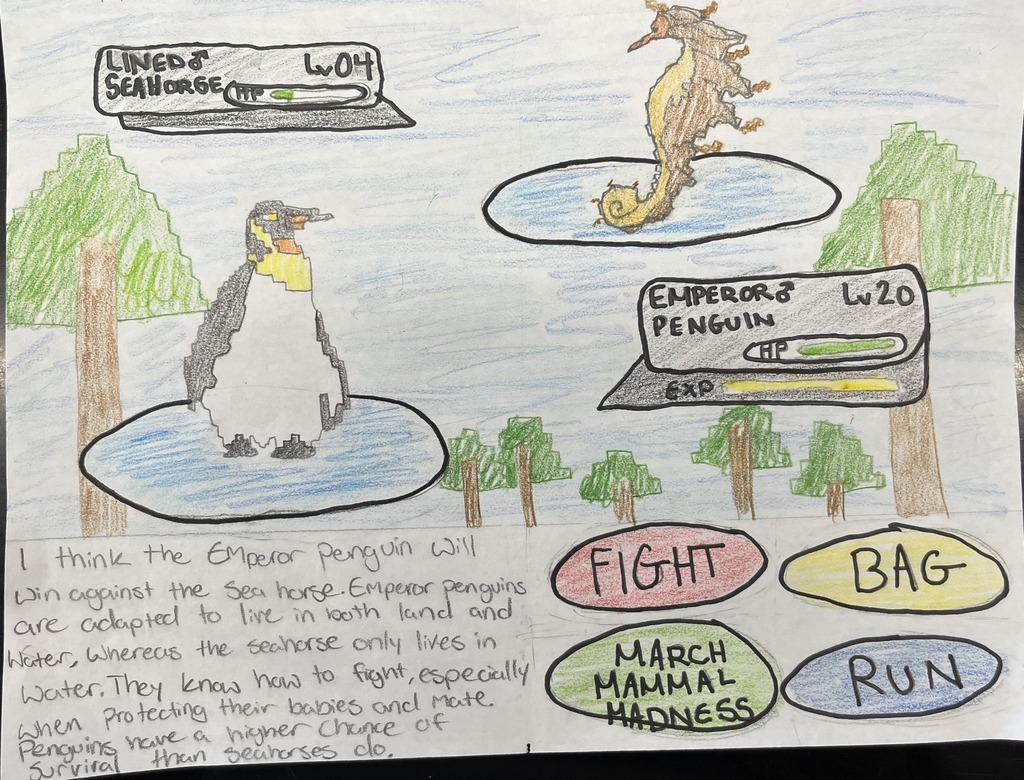 LINED♂ Lv04
SEAHORGE HP
EMPEROR♂ Lv20
PENGUIN
HP
EXP
I think the Emperor penguin will
win against the sea horse. Emperor penguins
are adapted to live in both land and
water, whereas the seahorse only lives in
water. They know how to fight, especially
when protecting their babies and mate.
Penguins have a higher chance of
survival than seahorses do.
FIGHT
BAG
MARCH
MAMMAL
MADNESS
RUN